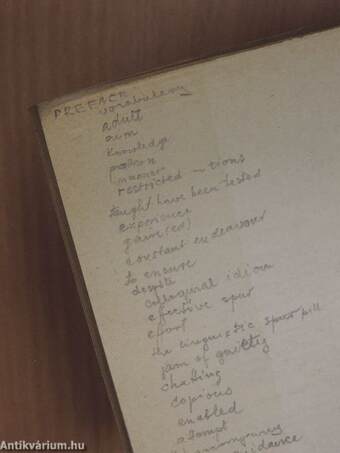 PREFACE
vocabulary
adult
aim
knowledge
manner
restricted ~ tions
taught have been tested
experience
gain(ed)
constant endeavour
to ensure
despite
colloquial idiom
effective spur
effort
the linguistic spur pill
jam of
chatting
copious
enabled
attempt
guidance
Antikvárium.hu